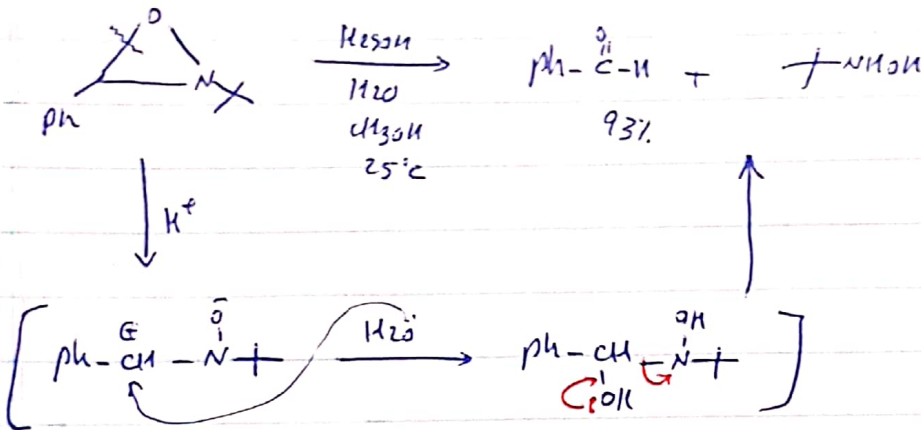 O
N
Ph
H2SO4
H2O
CH3OH
25°C
O
Ph-C-H + NHOH
93%
H+
⊕ O-
Ph-CH-N
H2Ö
OH
Ph-CH-N
OH